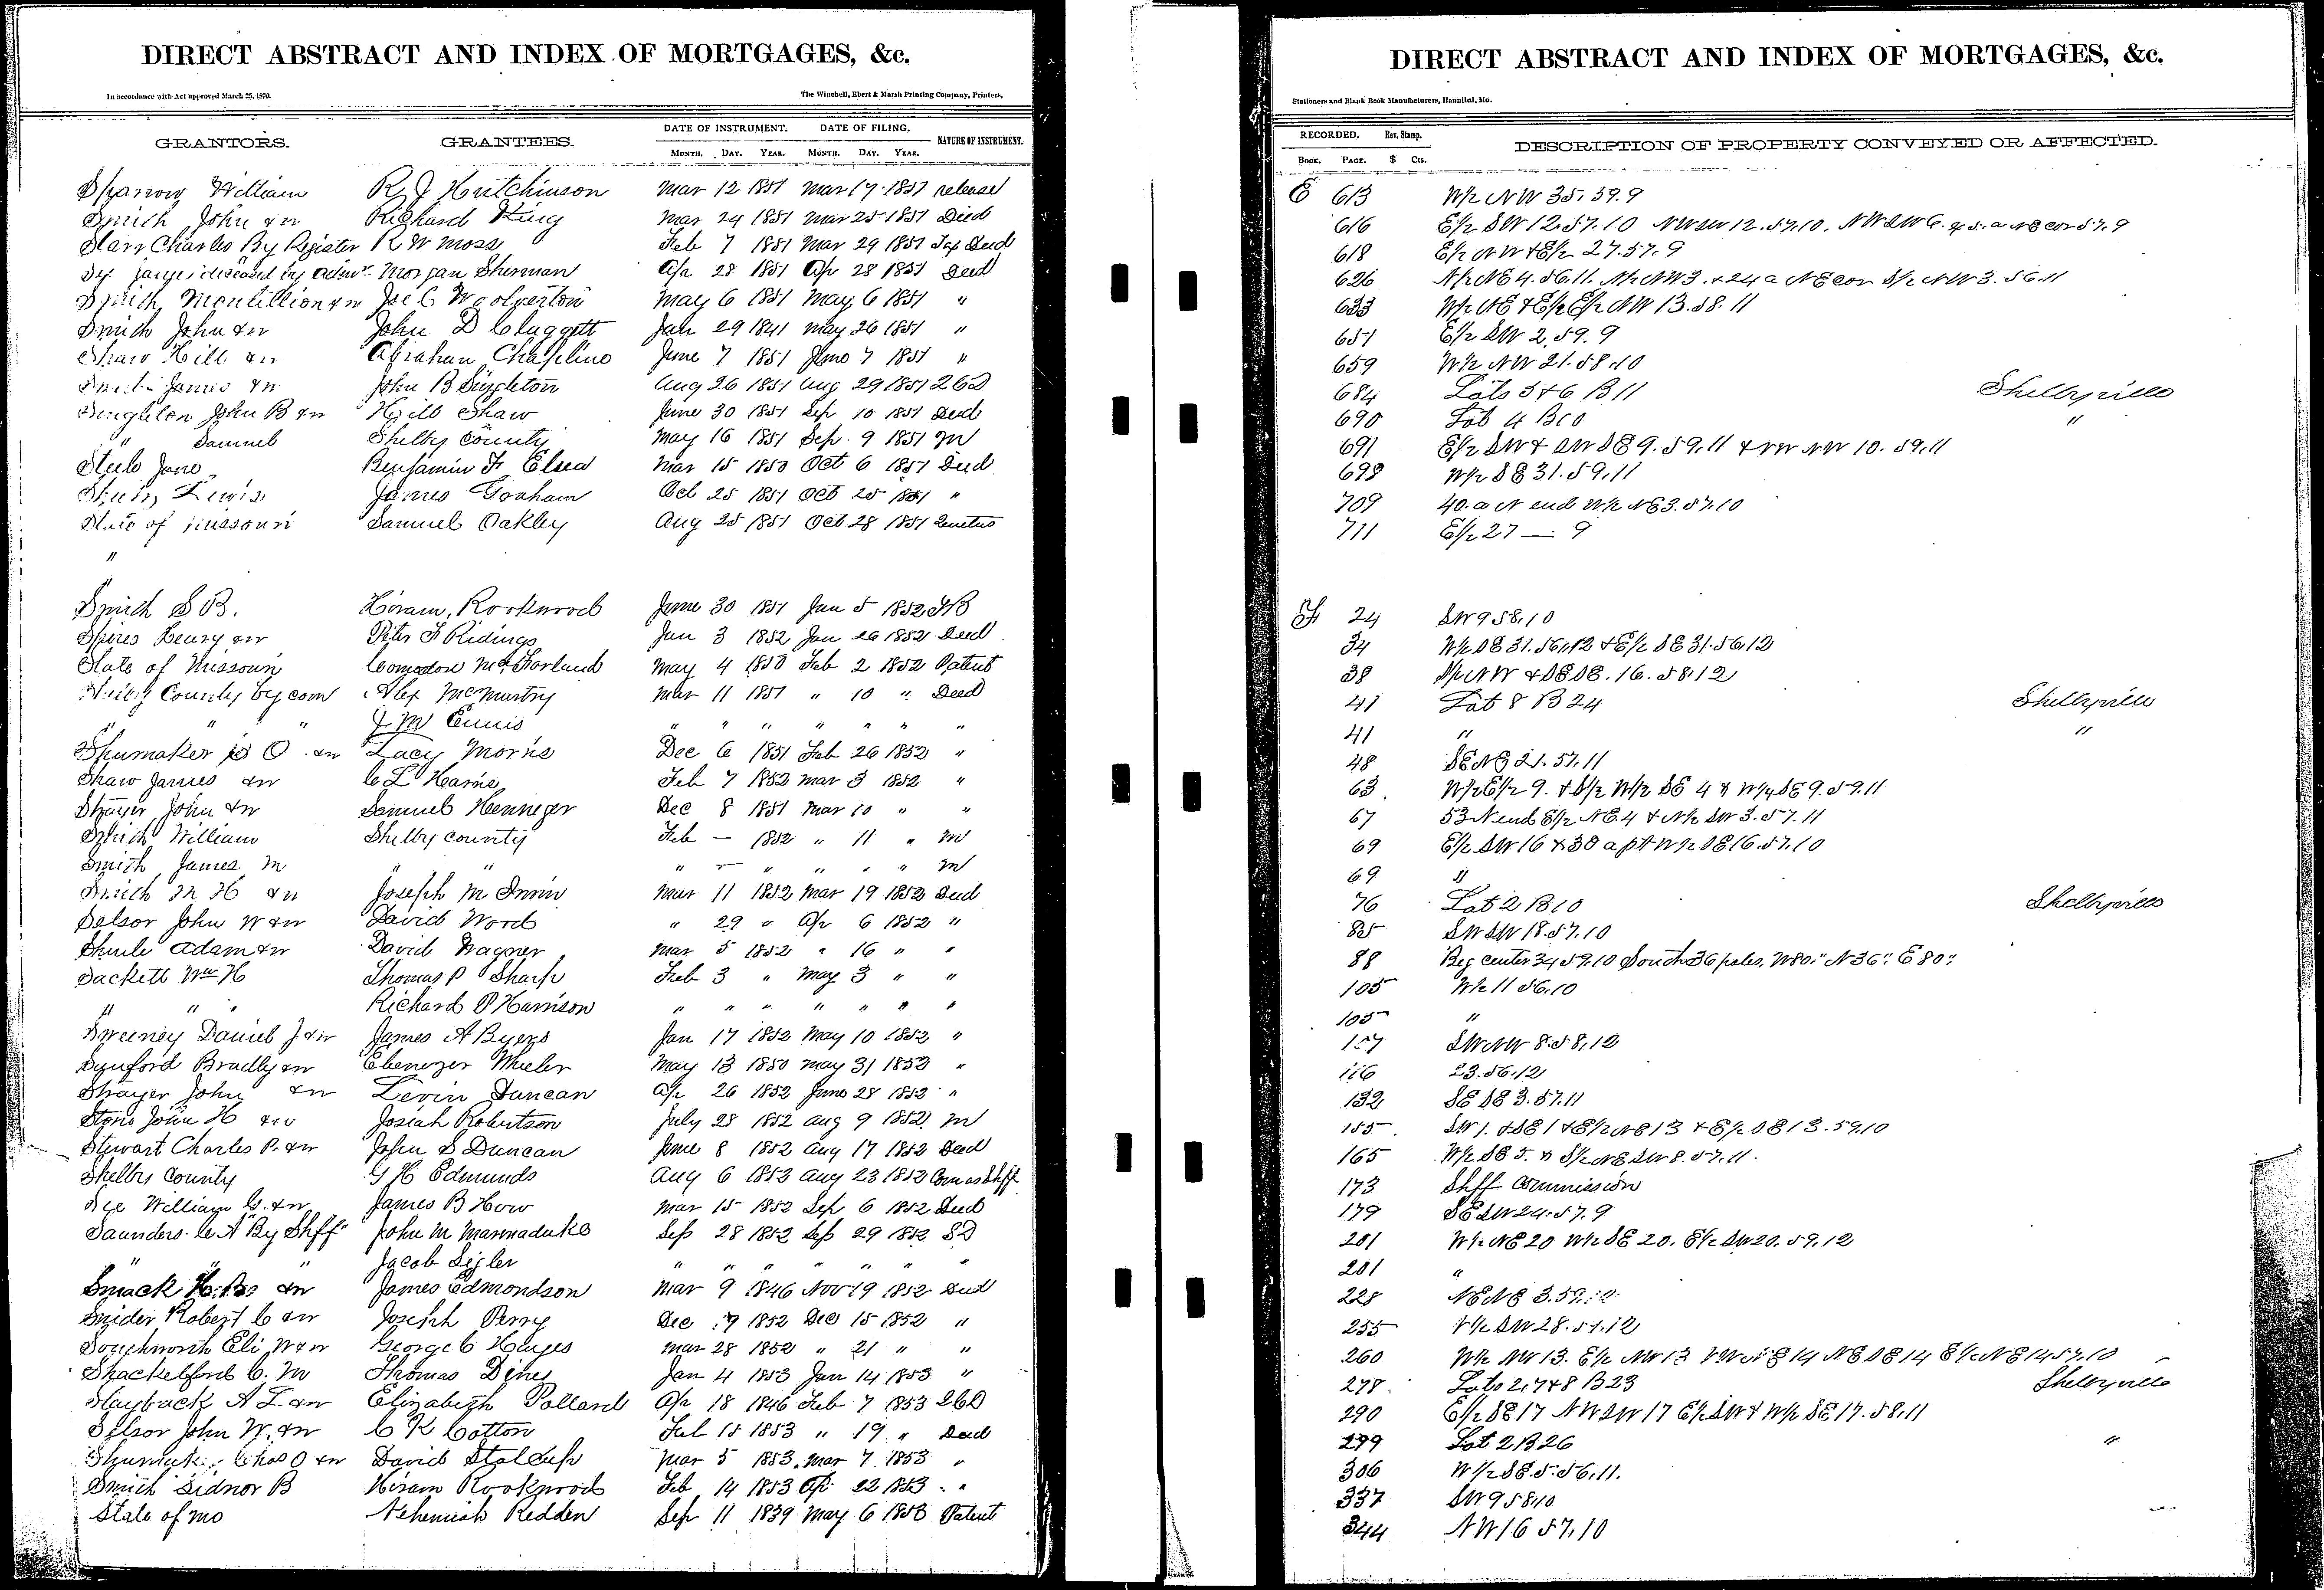 DIRECT ABSTRACT AND INDEX OF MORTGAGES, &c.
In accordance with Act approved March 25, 1870.
The Winchell, Ebert & Marsh Printing Company, Printers,
GRANTORS. GRANTEES. DATE OF INSTRUMENT. DATE OF FILING. NATURE OF INSTRUMENT.
MONTH. DAY. YEAR. MONTH. DAY. YEAR.
William R J Hutchinson Mar 12 1851 Mar 17 1851 release
Smith John &w Richard King Mar 24 1851 Mar 25 1851 Deed
Charles By Register R W Moss Feb 7 1851 Mar 29 1851 Tax Deed
deceased by Morgan Sherman Apr 28 1851 Apr 28 1851 Deed
Smith &w Joe C Woolverton May 6 1851 May 6 1851 "
Smith John &w John D Claggett Jan 29 1841 May 26 1851 "
Shaw Hill &w Abraham Chapline June 7 1851 June 7 1851 "
Smith James &w John B Singleton Aug 26 1851 Aug 29 1851 2CD
Singleton John B &w Hill Shaw June 30 1851 Sep 10 1851 Deed
" Samuel Shelby County May 16 1851 Sep 9 1851 M
Steel Jane Benjamin F Elsea Mar 15 1850 Oct 6 1851 Deed
Lewis James Gorham Oct 25 1851 Oct 25 1851 "
State of Missouri Samuel Oakley Aug 25 1851 Oct 28 1851
"
Smith S B. Hiram Rookwood June 30 1851 Jan 5 1852 TB
Spires Henry &w Peter F Ridings Jan 3 1852 Jan 26 1852 Deed
State of Missouri Comodore McFarland May 4 1850 Feb 2 1852 Patent
Shelby County by com Alex McMurtry Mar 11 1851 " 10 " Deed
" " " J M Ennis " " " " " " "
Shumaker O &w Lacy Morris Dec 6 1851 Feb 26 1852 "
Shaw James &w C L Hearne Feb 7 1852 Mar 3 1852 "
Strayer John &w Samuel Henneger Dec 8 1851 Mar 10 " "
Smith William Shelby County Feb — 1852 " 11 " M
Smith James M " " " — " " " " M
Smith M H &w Joseph M Irvin Mar 11 1852 Mar 19 1852 Deed
Selsor John W &w David Wood " 29 " Apr 6 1852 "
Adam &w David Wagner Mar 5 1852 " 16 " "
Sackett Wm H Thomas P Sharp Feb 3 " May 3 " "
" " " Richard P Harrison " " " " " " "
Sweeney Daniel J &w James A Byers Jan 17 1852 May 10 1852 "
Bradley &w Ebenezer Wheeler May 13 1850 May 31 1852 "
Strayer John &w Levin Duncan Apr 26 1852 June 28 1852 "
John H &w Josiah Robertson July 28 1852 Aug 9 1852 M
Stewart Charles P. &w John S Duncan June 8 1852 Aug 17 1852 Deed
Shelby County G H Edmunds Aug 6 1852 Aug 23 1852 Com as Shff
See William C. &w James B How Mar 15 1852 Sep 6 1852 Deed
Saunders C A By Shff John M Marmaduke Sep 28 1852 Sep 29 1852 SD
" " " Jacob Sigler " " " " " " "
Smock &w James Edmondson Mar 9 1846 Nov 19 1852 Deed
Snider Robert C &w Joseph Perry Dec 9 1852 Dec 15 1852 "
Southworth Eli W &w George C Hayes Mar 28 1852 " 21 " "
Shackelford C. M Thomas Dines Jan 4 1853 Jan 14 1853 "
Slayback A L &w Elizabeth Polland Apr 18 1846 Feb 7 1853 2CD
Selsor John W. &w C K Cotton Feb 15 1853 " 19 " Deed
Chas O &w David Stalcup Mar 5 1853 Mar 7 1853 "
Smith Sidnor B Hiram Rookwood Feb 14 1853 Apr 22 1853 "
State of Mo Nehemiah Redden Sep 11 1839 May 6 1853 Patent
DIRECT ABSTRACT AND INDEX OF MORTGAGES, &c.
Stationers and Blank Book Manufacturers, Hannibal, Mo.
RECORDED. Rev. Stamp. DESCRIPTION OF PROPERTY CONVEYED OR AFFECTED.
BOOK. PAGE. $ Cts.
E 613 W½ NW 35.59.9
616 E½ SW 12.57.10 NWSW 12.57.10. NWSW 6. & 5. a NE cor 57.9
618 E½ NW & E½ 27.57.9
626 N½ NE 4.56.11. N½ NW 3. & 24 a NE cor S½ NW 3.56.11
633 W½ NE & E½ E½ NW 13.58.11
651 E½ SW 2.59.9
659 W½ NW 21.58.10
684 Lots 5 & 6 B 11 Shelbyville
690 Lot 4 B 10 "
691 E½ SW & SW SE 9.59.11 & NW NW 10.59.11
698 W½ SE 31.59.11
709 40. a N end W½ NE 3.57.10
711 E½ 27 — 9
F 24 SW 9 58.10
34 W½ SE 31.56.12 & E½ SE 31.56.12
38 S½ NW & SE SE. 16.58.12
41 Lot 8 B 24 Shelbyville
41 " "
48 SE NE 21.57.11
63. W½ E½ 9. & S½ W½ SE 4 & W¼ SE 9.59.11
67 53 N end E½ NE 4 & N½ SW 3.57.11
69 E½ SW 16 & 30 a pt W½ SE 16.57.10
69 "
76 Lot 2 B 10 Shelbyville
85 SW SW 18.57.10
88 Beg center 34 59.10 South 36 poles, W 80 " N 36 " E 80 "
105 W½ 11 56.10
105 "
107 SW NW 8.58.12
116 23.56.12
132 SE SE 3.57.11
155. SW 1. & SE 1 & E½ NE 13 & E½ SE 13.59.10
165 W½ SE 5. & S½ NE SW 8.57.11.
173 Shff Commission
179 SE SW 24.57.9
201 W½ NE 20 W½ SE 20. E½ SW 20.59.12
201 "
228 NE NE 3.59.12
255 SW 28.57.12
260 W½ NW 13. E½ NW 13 NE 14 NE SE 14 E½ NE 14 57.10
278. Lots 2, 7 & 8 B 23 Shelbyville
290 E½ SE 17 NW SW 17 E½ SW & W½ SE 17.58.11
299 Lot 2 B 26 "
306 W½ SE.5.56.11.
337 SW 9 58.10
344 NW 16 57.10